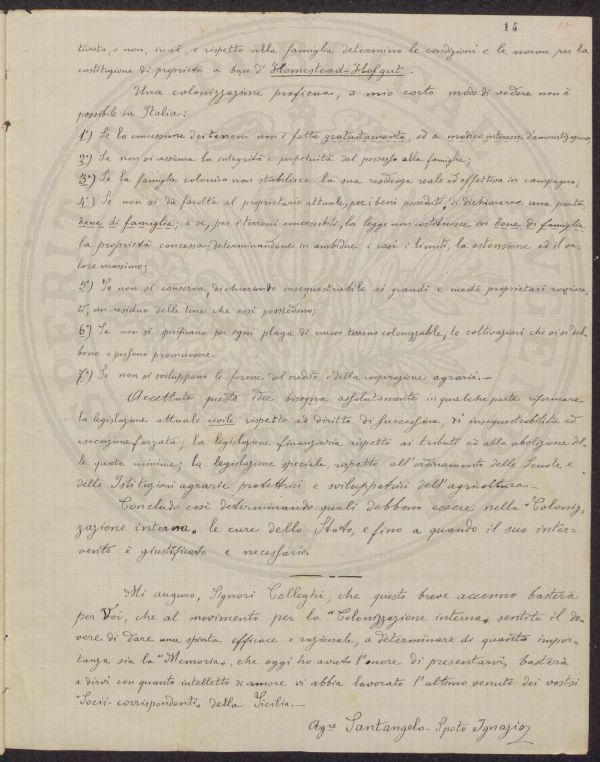 14
tivata, o non, in sè e rispetto alla famiglia determino le condizioni e le norme per la
costituzione di proprietà a base d' Homestead-Hofgut.
Una colonizzazione proficua, a mio corto modo di vedere non è
possibile in Italia:
1°) Se la concessione dei terreni non è fatta gratuitamente, od a modico interesse d'ammortizzazione;
2°) Se non si assicura la integrità e perpetuità del possesso alla famiglia;
3°) Se la famiglia colonica non stabilisce la sua residenza reale ed effettiva in campagna;
4°) Se non si dà facoltà al proprietario attuale, per i beni posseduti, di dichiararne una parte,
bene di famiglia; e se, per i terreni concessibili, la legge non costituisce in bene di famiglia
la proprietà concessa; determinandone in ambidue i casi i limiti, la estensione ed il va-
lore massimo;
5°) Se non si conserva, dichiarando insequestrabile ai grandi e medi proprietari rovina-
ti, un residuo delle terre che essi possiedono;
6°) Se non si specificano per ogni plaga di nuovo terreno colonizzabile, le coltivazioni che vi si deb-
bono e possono promuovere.
7°) Se non si sviluppano le forme del credito e della cooperazione agraria.—
Accettate queste idee bisogna assolutamente in qualche parte riformare
la legislazione attuale civile rispetto ad diritto di successione, di insequestrabilità ed
esecuzione forzata; la legislazione finanziaria rispetto ai tributi ed alla abolizione del-
le quote minime; la legislazione speciale, rispetto all'ordinamento delle Scuole e
delle Istituzioni agrarie protettrici e sviluppatrici dell'agricoltura.—
Concludo così determinando quali debbono essere nella "Coloniz-
zazione interna" le cure dello Stato, e fino a quando il suo inter-
vento è giustificato e necessario.
Mi auguro, Signori Colleghi, che questo breve accenno basterà
per Voi, che al movimento per la "Colonizzazione interna" sentite il do-
vere di dare una spinta efficace e razionale, a determinare di quanta impor-
tanza sia la "Memoria", che oggi ho avuto l'onore di presentarvi, basterà
a dirvi con quanto intelletto di amore vi abbia lavorato l'ultimo venuto dei vostri
"Socii-corrispondenti" della Sicilia.—
Agre Santangelo-Spoto Ignazio